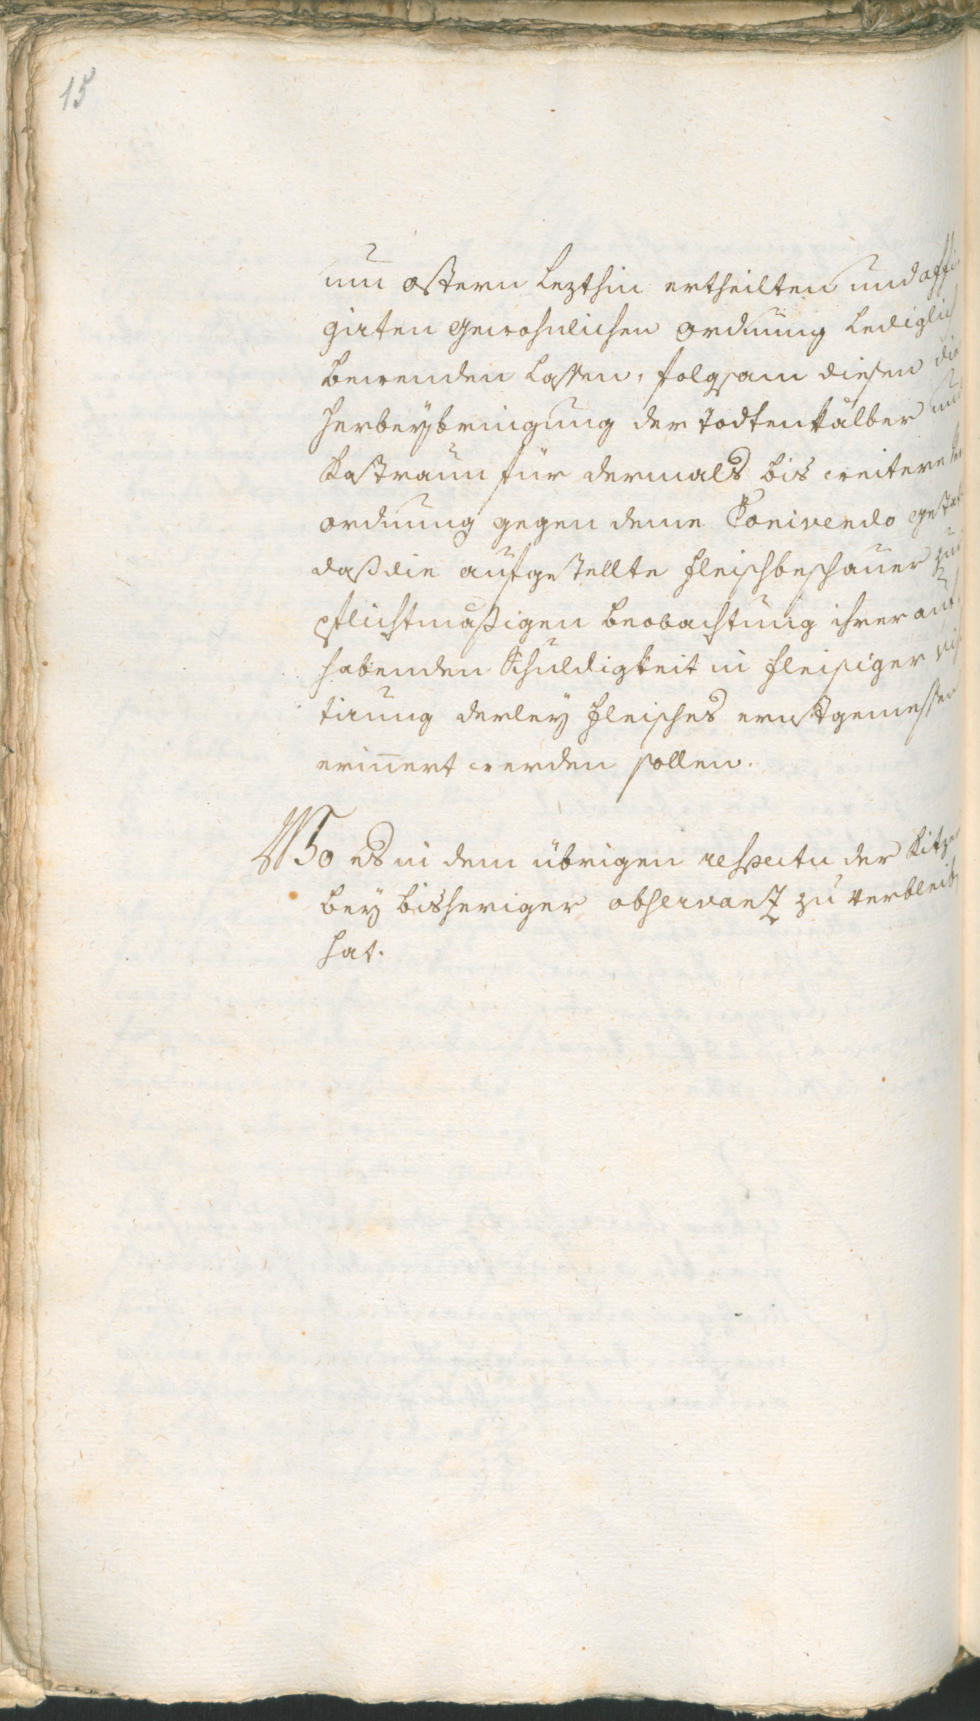 15
um ostern lezthin ertheilten und affi
girten gewohnlichen ordnung lediglich
bewenden lassen, folgsam diesen die
herbeybringung der todten kälber und
Castraun für dermals bis weitere
ordnung gegen deme Conivendo
daß die aufgestellte fleischbeschauer zu
pflichtmäßigen beobachtung ihrer auf
habenden Schuldigkeit in fleißiger visi
tirung derley fleisches ernstgemessen
erinnert werden sollen.
Wo es in dem übrigen respectu der Kitze
bey bisheriger observanz zu verbleib
hat.